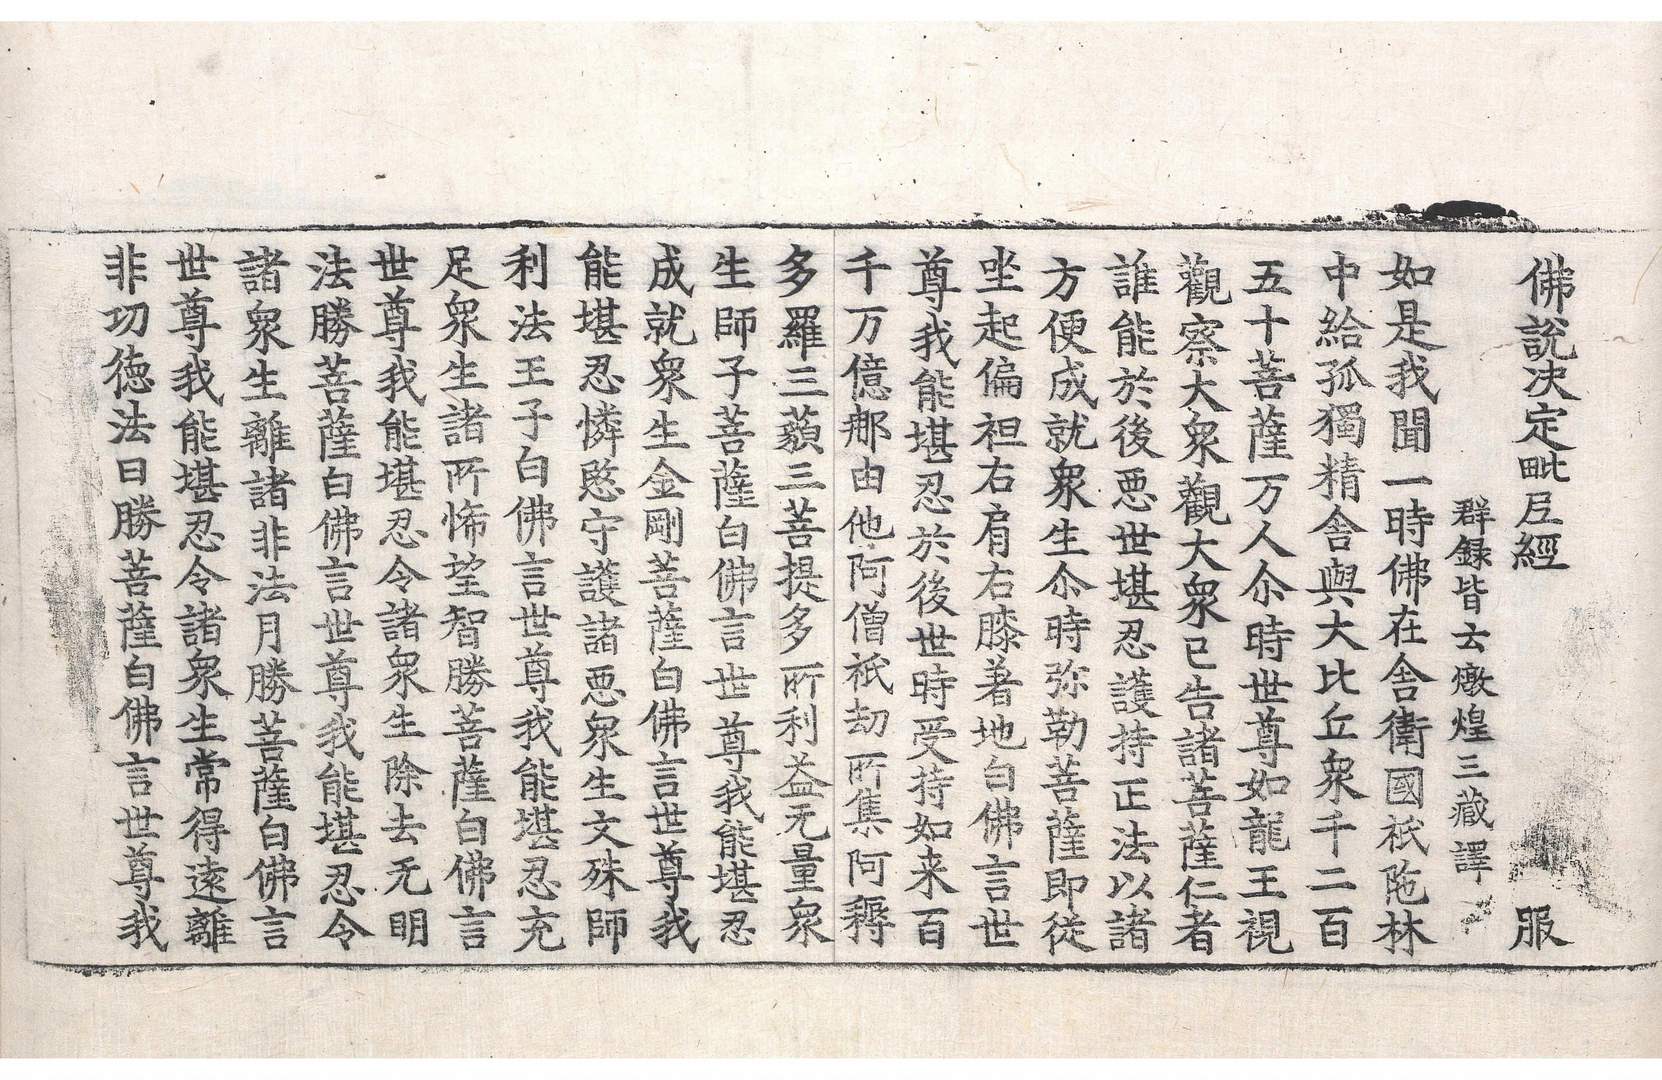 佛說决定毗尼經　服
群錄皆云燉煌三藏譯
如是我聞一時佛在舍衛國祇陁林
中給孤獨精舍與大比丘衆千二百
五十菩薩万人尒時世尊如龍王視
觀察大衆觀大衆已告諸菩薩仁者
誰能於後惡世堪忍護持正法以諸
方便成就衆生尒時弥勒菩薩即從
坐起偏袒右肩右膝著地白佛言世
尊我能堪忍於後世時受持如来百
千万億那由他阿僧祇劫所集阿耨
多羅三藐三菩提多所利益无量衆
生師子菩薩白佛言世尊我能堪忍
成就衆生金剛菩薩白佛言世尊我
能堪忍憐愍守護諸惡衆生文殊師
利法王子白佛言世尊我能堪忍充
足衆生諸所悕望智勝菩薩白佛言
世尊我能堪忍令諸衆生除去无明
法勝菩薩白佛言世尊我能堪忍令
諸衆生離諸非法月勝菩薩白佛言
世尊我能堪忍令諸衆生常得遠離
非功德法日勝菩薩白佛言世尊我